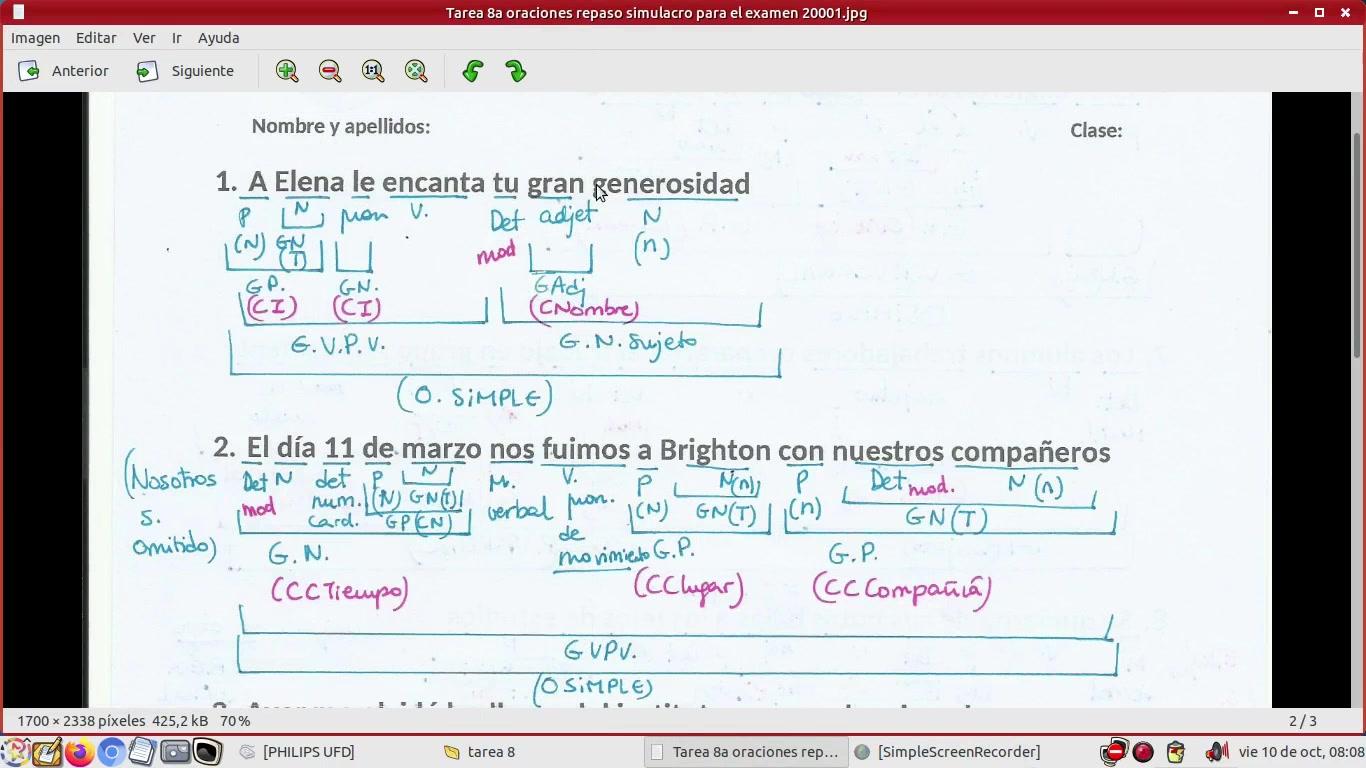 Tarea 8a oraciones repaso simulacro para el examen 20001.jpg
Imagen Editar Ver Ir Ayuda
Anterior Siguiente
Nombre y apellidos: Clase:
1. A Elena le encanta tu gran generosidad
P N pron V. Det adjet N
(N) GN (T) mod (n)
GP. GN. GAdj
(CI) (CI) (CNombre)
G.V.P.V. G.N. Sujeto
(O. SIMPLE)
2. El día 11 de marzo nos fuimos a Brighton con nuestros compañeros
(Nosotros Det N det P N M. V. P N(n) P Det mod. N (n)
mod num. (N) GN(T) verbal pron. (N) GN(T) (n) GN(T)
s. card. GP(CN) de
omitido) G.N. movimiento G.P. G.P.
(CCTiempo) (CClugar) (CCCompañía)
GVPV.
(O SIMPLE)
1700 × 2338 píxeles 425,2 kB 70% 2 / 3
[PHILIPS UFD] tarea 8 Tarea 8a oraciones rep... [SimpleScreenRecorder] vie 10 de oct, 08:08